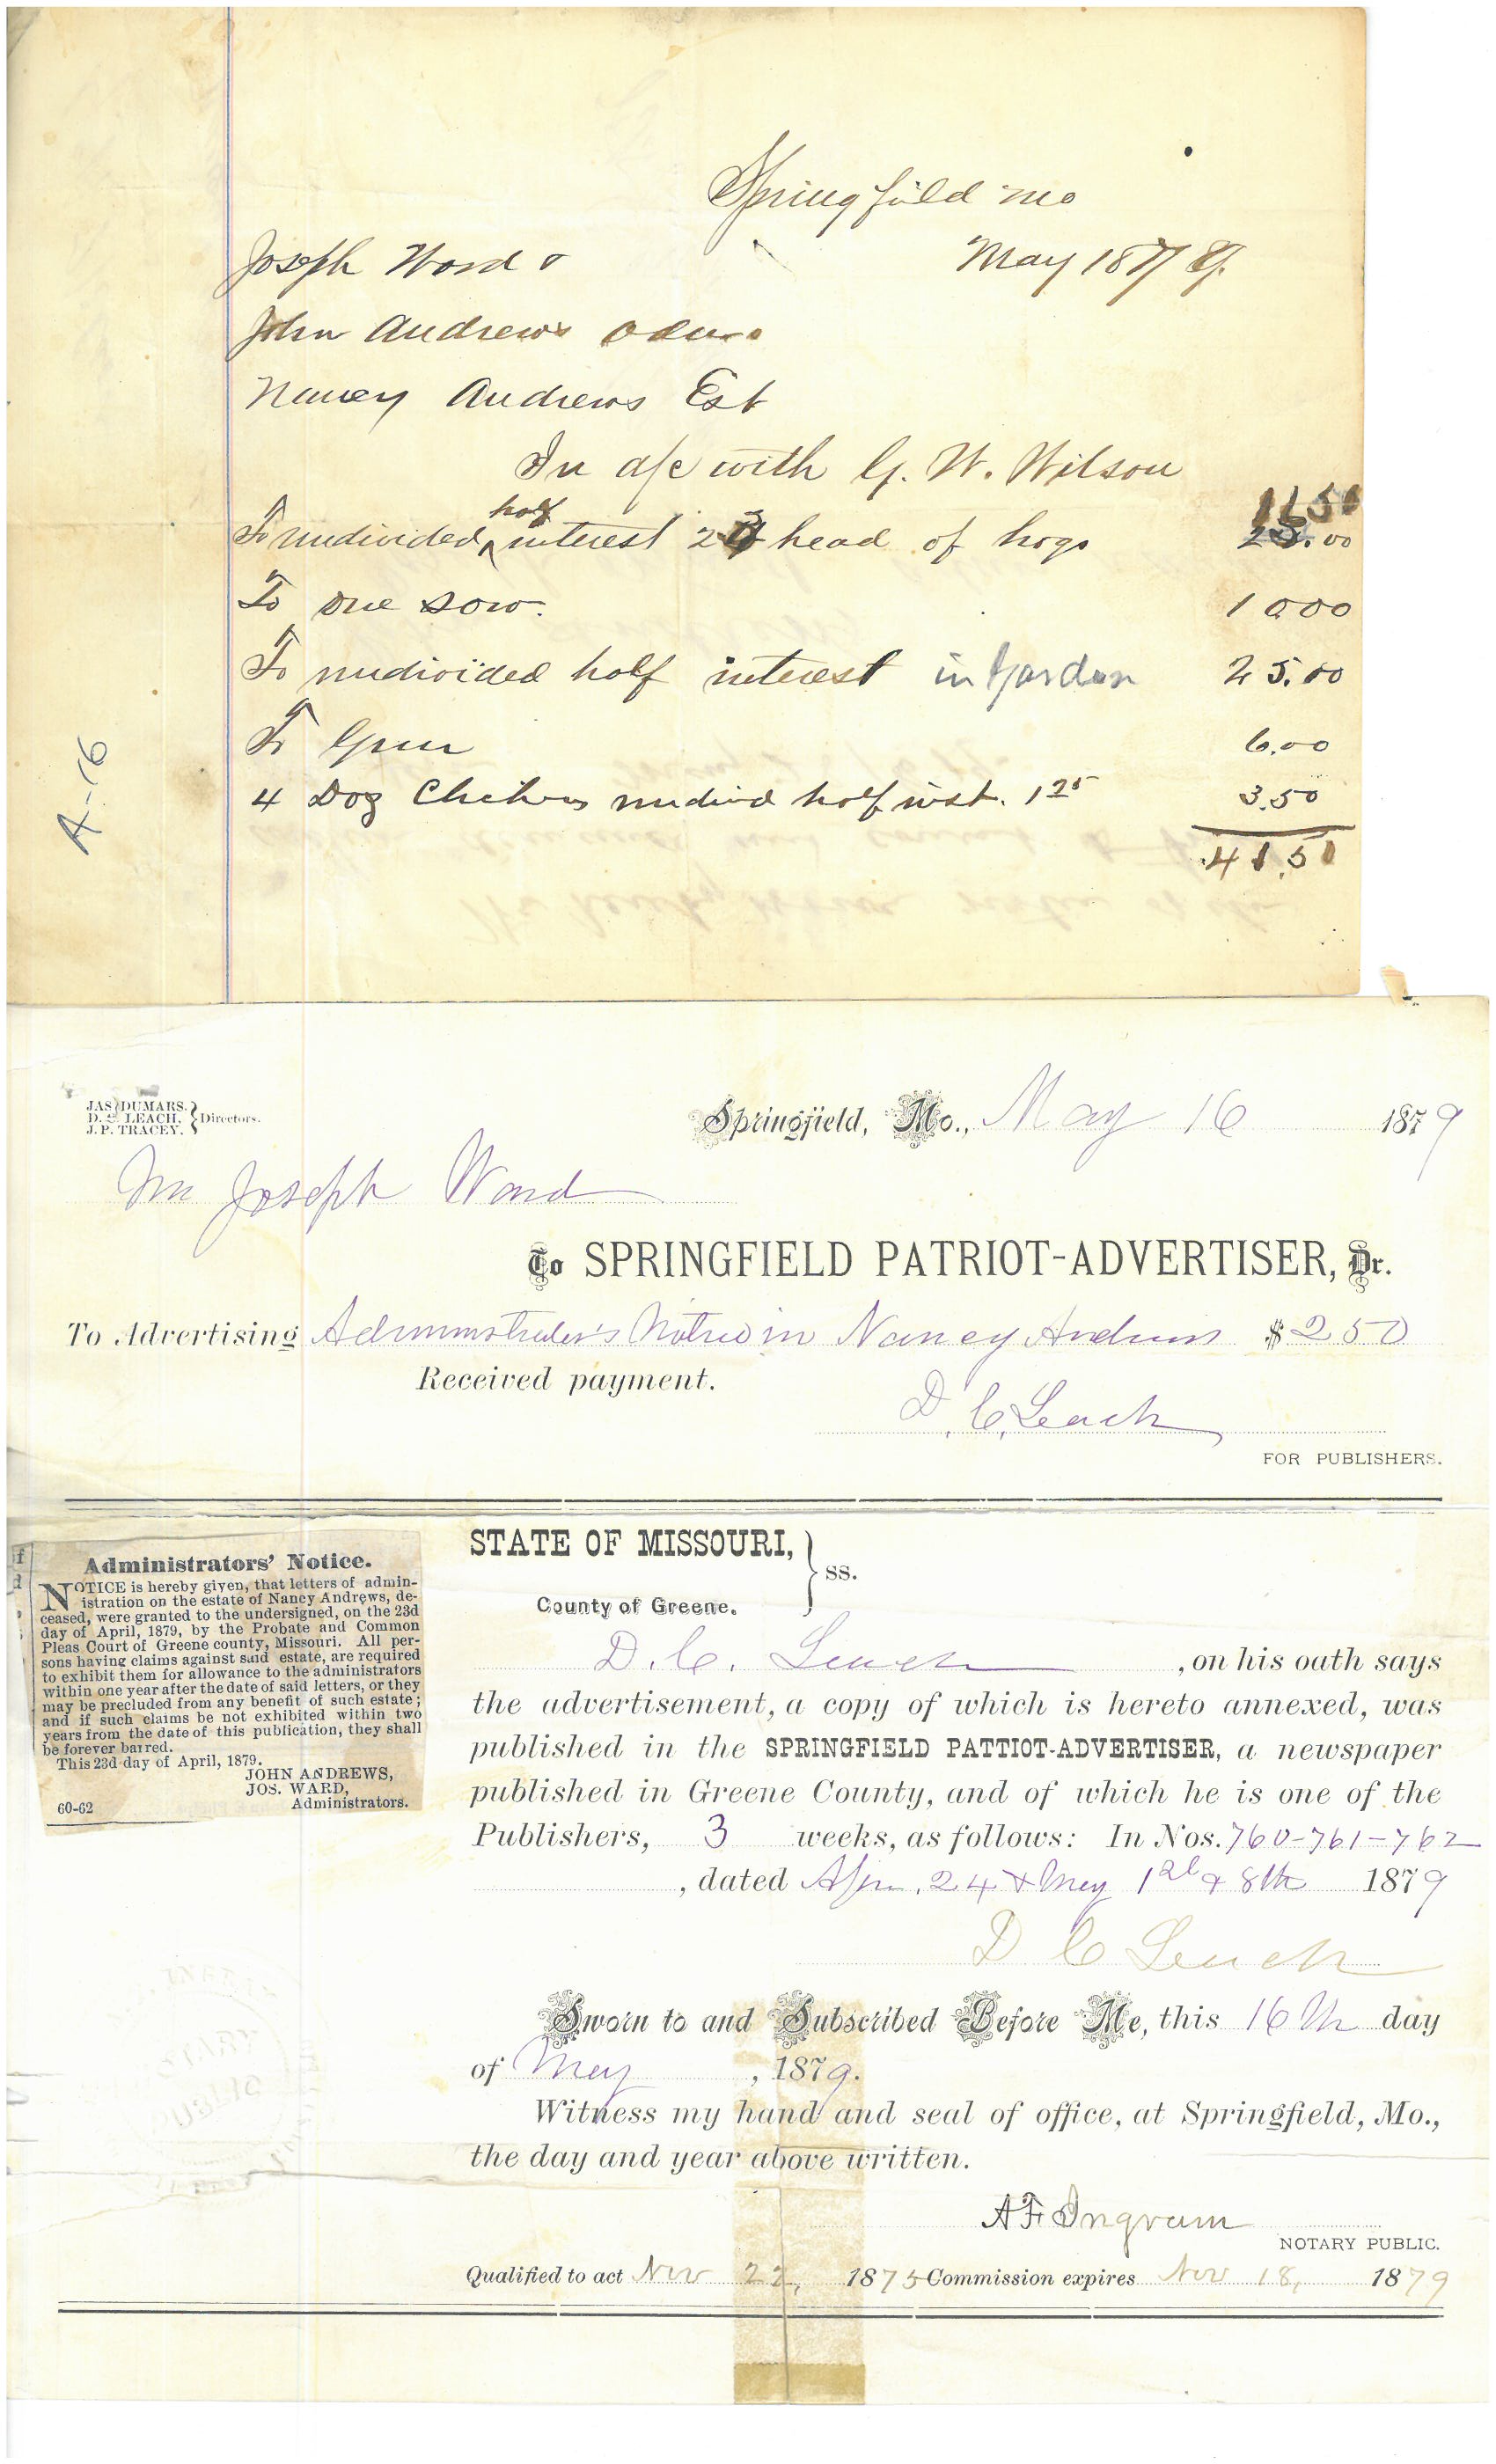 Springfield Mo
Joseph Ward & May 1879.
John Andrews Adms
Nancy Andrews Est
In a/c with G. W. Wilson
half
11.50
To undivided interest 23 head of hogs 23.00
To one sow. 10 00
To undivided half interest in Garden 25.00
To Gun 6.00
4 Doz Chickens undivid half inst. 1 25 3.50
41.50
A-16
JAS DUMARS.
D. C. LEACH. Directors.
J. P. TRACEY.
Springfield, Mo., May 16 1879
Mr Joseph Ward
To SPRINGFIELD PATRIOT-ADVERTISER, Dr.
To Advertising Administrator's Notice in Nancy Andrews $ 2 50
Received payment.
D. C. Leach
FOR PUBLISHERS.
Administrators' Notice.
NOTICE is hereby given, that letters of admin-
istration on the estate of Nancy Andrews, de-
ceased, were granted to the undersigned, on the 23d
day of April, 1879, by the Probate and Common
Pleas Court of Greene county, Missouri. All per-
sons having claims against said estate, are required
to exhibit them for allowance to the administrators
within one year after the date of said letters, or they
may be precluded from any benefit of such estate;
and if such claims be not exhibited within two
years from the date of this publication, they shall
be forever barred.
This 23d day of April, 1879.
JOHN ANDREWS,
JOS. WARD,
60-62 Administrators.
STATE OF MISSOURI,
ss.
County of Greene.
D. C. Leach , on his oath says
the advertisement, a copy of which is hereto annexed, was
published in the SPRINGFIELD PATTIOT-ADVERTISER, a newspaper
published in Greene County, and of which he is one of the
Publishers, 3 weeks, as follows: In Nos. 760-761-762
, dated Apr. 24 & May 1st & 8th 1879
D C Leach
Sworn to and Subscribed Before Me, this 16th day
of May , 1879.
Witness my hand and seal of office, at Springfield, Mo.,
the day and year above written.
A F Ingram
NOTARY PUBLIC.
Qualified to act Nov 22, 1875 Commission expires Nov 18, 1879